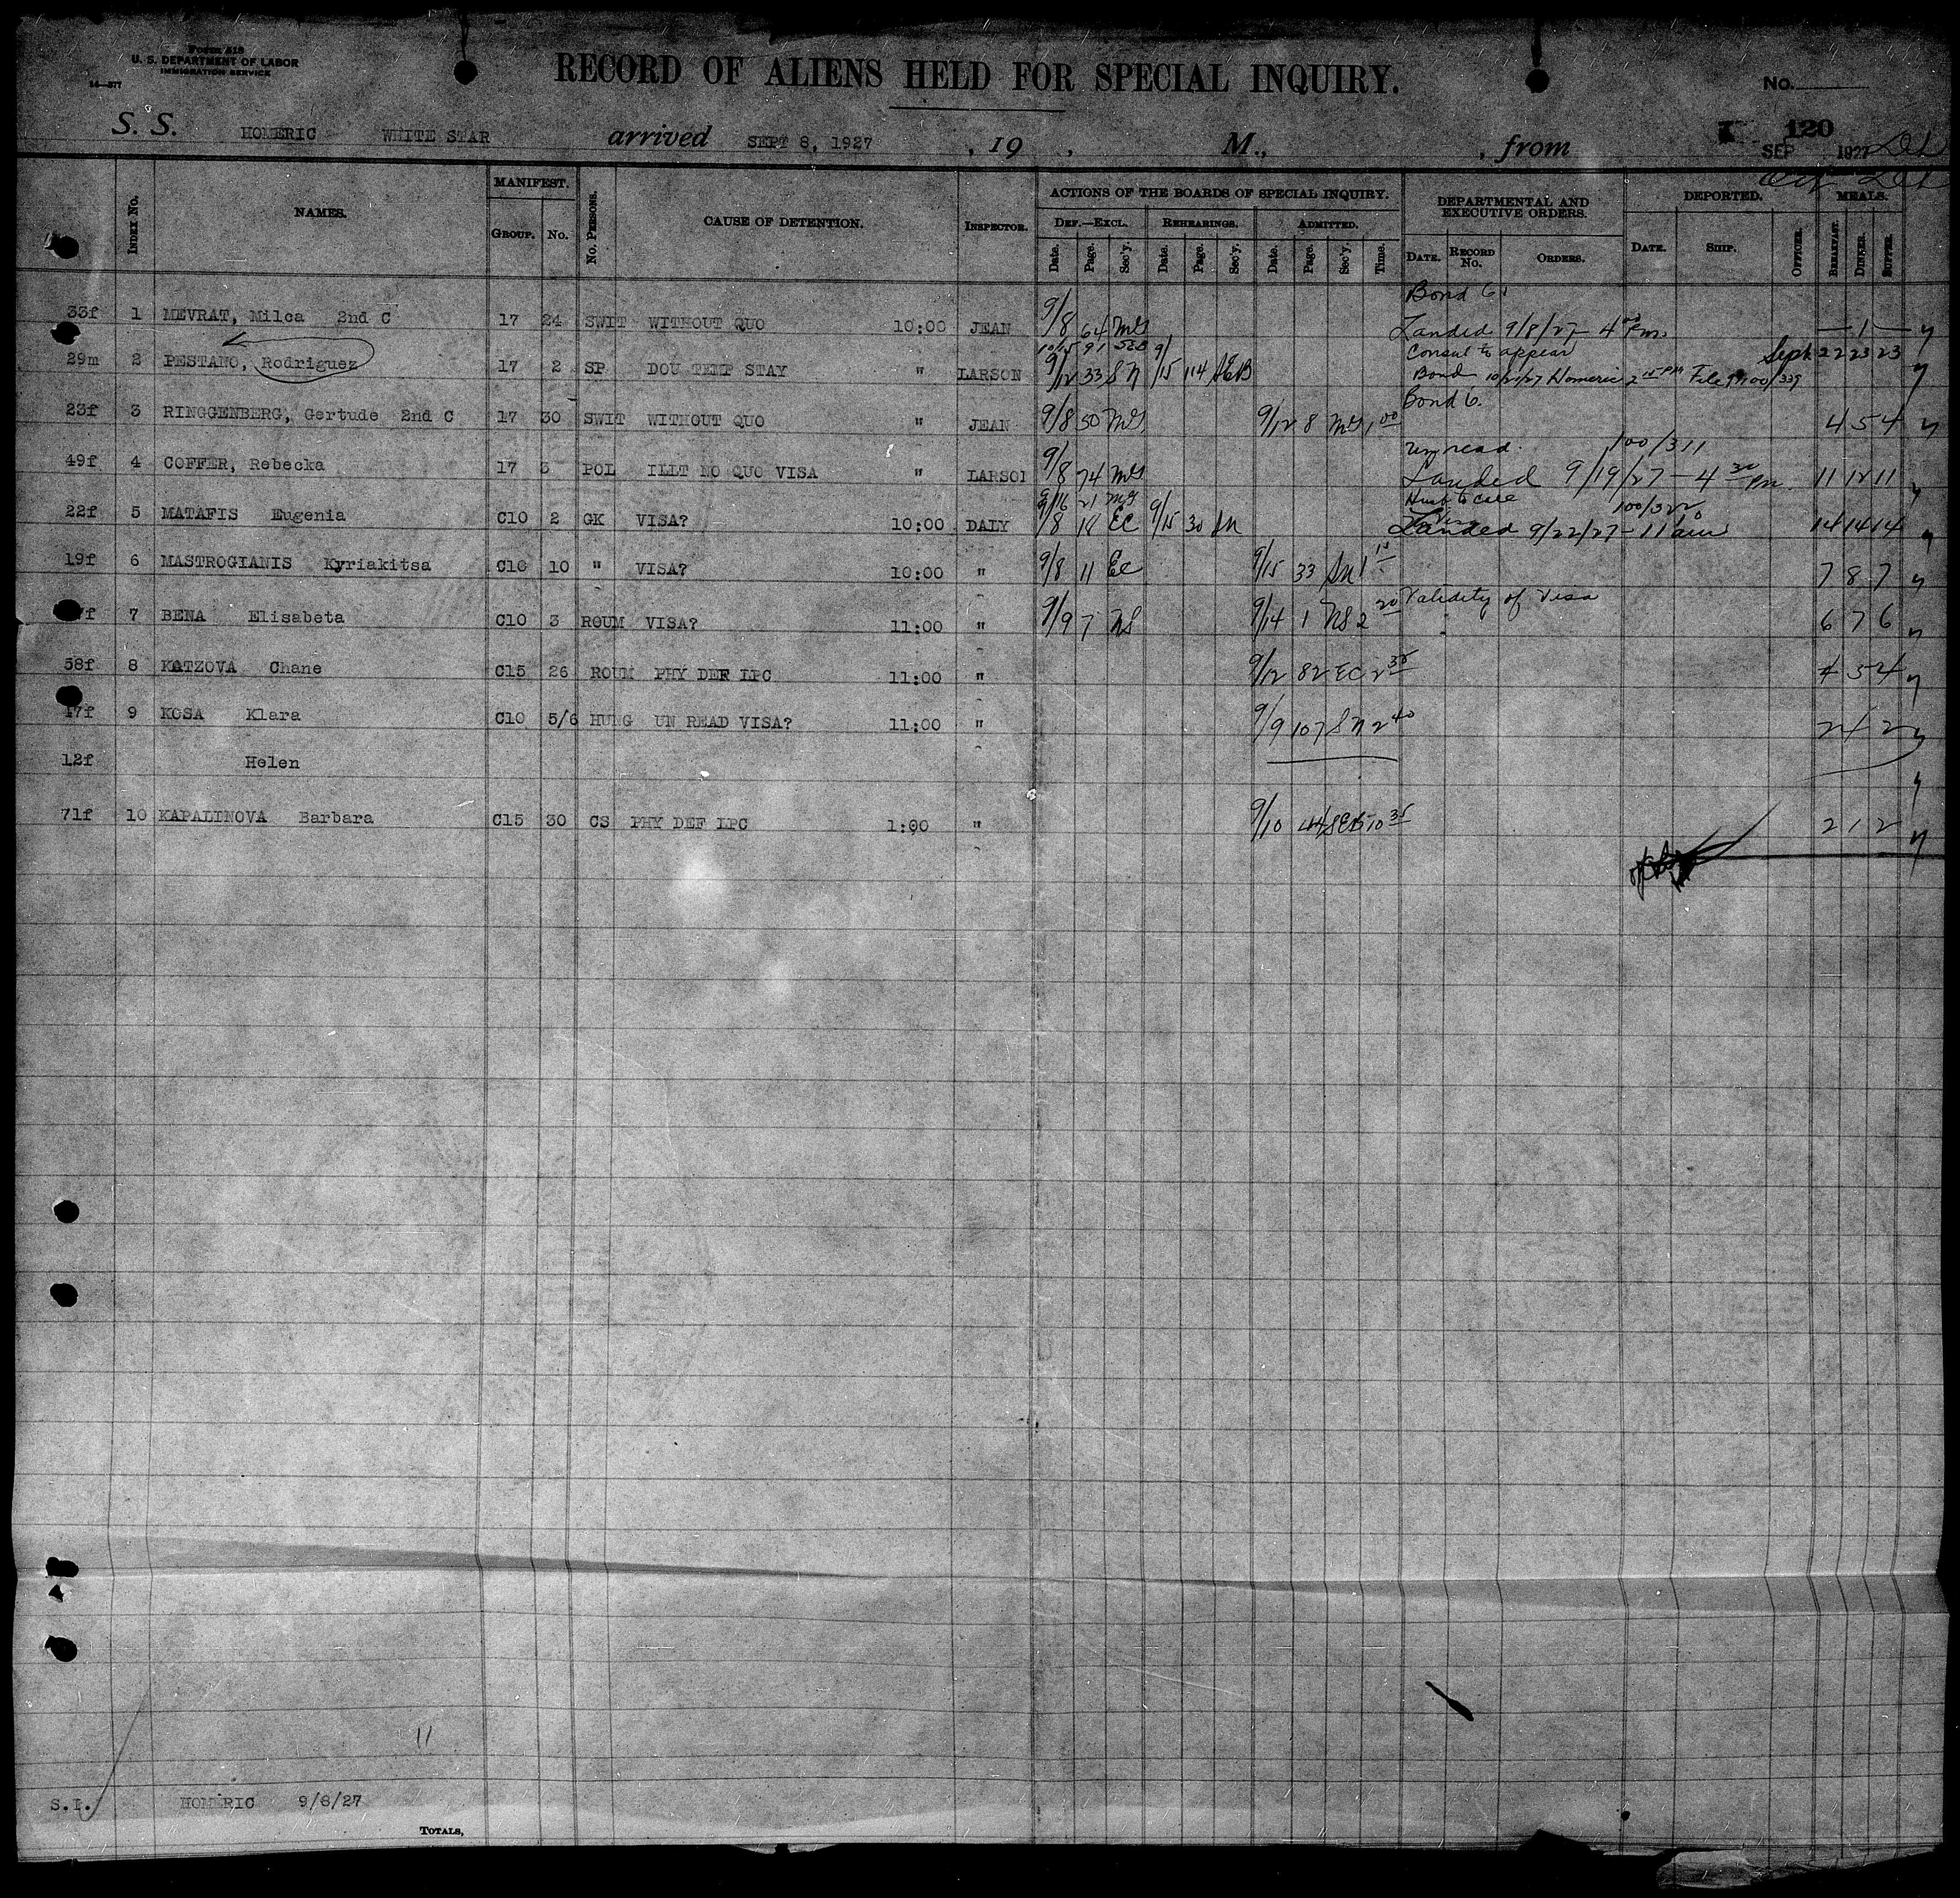 Form 518
U. S. DEPARTMENT OF LABOR
IMMIGRATION SERVICE
14—577
RECORD OF ALIENS HELD FOR SPECIAL INQUIRY.
No.
S. S. HOMERIC WHITE STAR arrived SEPT 8, 1927 , 19 , M., , from
120
SEP 1927
INDEX No. NAMES. MANIFEST. GROUP. No. No. PERSONS. CAUSE OF DETENTION. INSPECTOR. ACTIONS OF THE BOARDS OF SPECIAL INQUIRY. DEF.—EXCL. Date. Page. Sec'y. REHEARINGS. Date. Page. Sec'y. ADMITTED. Date. Page. Sec'y. Time. DEPARTMENTAL AND EXECUTIVE ORDERS. DATE. RECORD No. ORDERS. DEPORTED. DATE. SHIP. OFFICER. MEALS. BREAKFAST. DINNER. SUPPER.
Bond 6.
33f 1 MEVRAT, Milca 2nd C 17 24 SWIT WITHOUT QUO 10:00 JEAN 9/8 64 MG Landed 9/8/27 - 4 00 Pm. — 1 —
10/15 91 SEB Consul to appear Sept 22 23 23
29m 2 PESTANO, Rodriguez 17 2 SP DOU TEMP STAY " LARSON 9/12 33 SN 9/15 114 SEB Bond 10/21/27 Homeric 2 15 PM File 99100/339
Bond 6.
23f 3 RINGGENBERG, Gertude 2nd C 17 30 SWIT WITHOUT QUO " JEAN 9/8 50 MG 9/12 8 MG 1 00 4 5 4
unread. 100/311
49f 4 COFFER, Rebecka 17 3 POL ILLT NO QUO VISA " LARSON 9/8 74 MG Landed 9/19/27 - 4 30 Pm. 11 12 11
9/16 21 MG Husb to care 100/322
22f 5 MATAFIS Eugenia C10 2 GK VISA? 10:00 DALY 9/8 18 EC 9/15 30 SN Landed 9/22/27 - 11 am 14 14 14
19f 6 MASTROGIANIS Kyriakitsa C10 10 " VISA? 10:00 " 9/8 11 EC 9/15 33 SN 7 8 7
Validity of Visa
7f 7 BENA Elisabeta C10 3 ROUM VISA? 11:00 " 9/9 7 NS 9/14 1 NS 2 20 6 7 6
58f 8 KATZOVA Chane C15 26 ROUM PHY DEF LPC 11:00 " 9/12 82 EC 2 35 4 5 4
47f 9 KOSA Klara C10 5/6 HUNG UN READ VISA? 11:00 " 9/9 107 SN 2 40 2 4 2
12f Helen
71f 10 KAPALINOVA Barbara C15 30 CS PHY DEF LPC 1:00 " 9/10 44 SEB 10 35 2 1 2
11
S.I. HOMERIC 9/8/27
TOTALS,